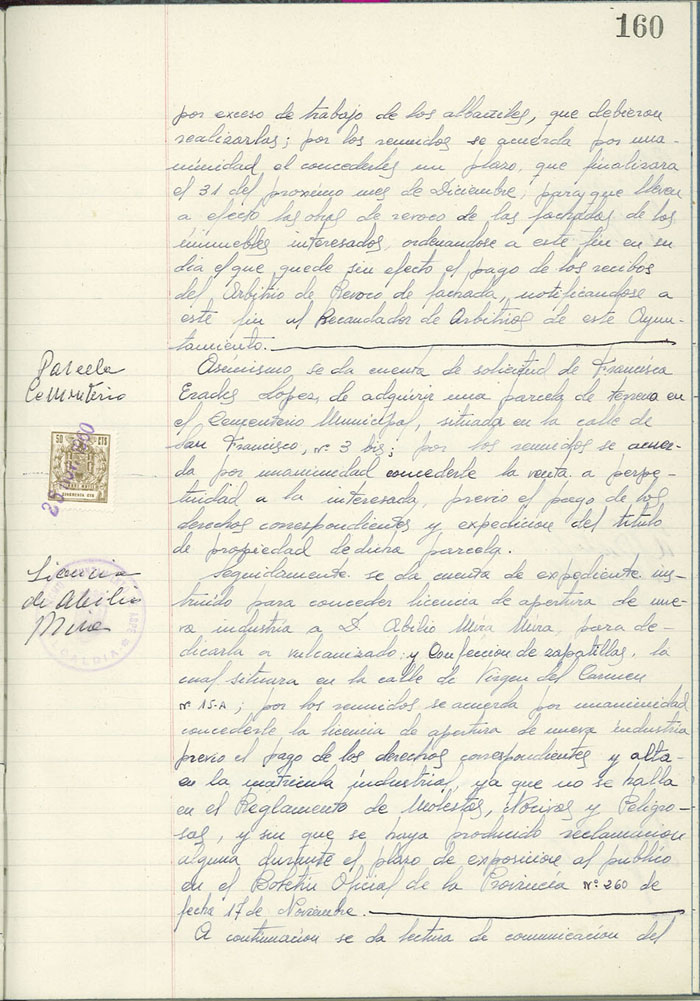 160
por exceso de trabajo de los albañiles, que debieron
realizarlas; por los reunidos se acuerda por una-
nimidad el concederles un plazo, que finalizara
el 31 del proximo mes de Diciembre, para que lleven
a efecto las obras de revoco de las fachadas de los
inmuebles interesados, ordenandose a este fin en su
dia el que quede sin efecto el pago de los recibos
del Arbitrio de Revoco de fachada, notificandose a
este fin al Recaudador de Arbitrios de este Ayun-
tamiento.
Parcela
Cementerio
Asimismo, se da cuenta de solicitud de Francisca
Erades Lopez, de adquirir una parcela de terreno en
el Cementerio Municipal, situada en la calle de
San Francisco, nº 3 bis; por los reunidos se acuer-
da por unanimidad concederle la venta a perpe-
tuidad a la interesada, previo el pago de los
derechos correspondientes y expedicion del titulo
de propiedad de dicha parcela.
50 CTS
Licencia
de Abilio
Mira
ALCALDIA
Seguidamente se da cuenta de expediente ins-
truido para conceder licencia de apertura de nue-
va industria a D. Abilio Mira Mira, para de-
dicarla a vulcanizado y Confeccion de zapatillas, la
cual situara en la calle de Virgen del Carmen
nº 15-A; por los reunidos se acuerda por unanimidad
concederle la licencia de apertura de nueva industria
previo el pago de los derechos correspondientes y alta
en la matricula industrial, ya que no se halla
en el Reglamento de Molestos, Nocivas y Peligro-
sas, y sin que se haya producido reclamacion
alguna durante el plazo de exposicion al publico
en el Boletin Oficial de la Provincia nº 260 de
fecha 17 de Noviembre.
A continuacion se da lectura de comunicacion del